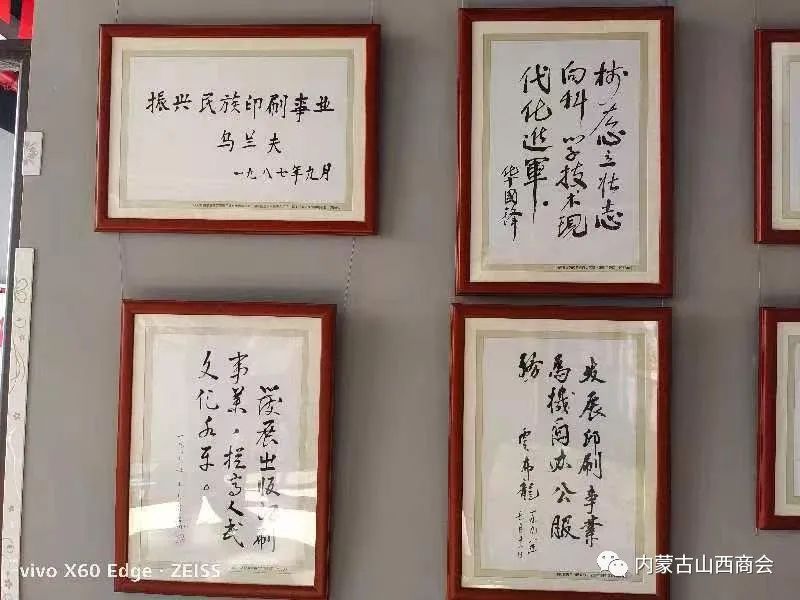 振兴民族印刷事业
乌兰夫
一九八七年九月
树雄心立壮志
向科学技术现
代化進軍。
华国锋
發展出版印刷
事業，提高人民
文化水平。
发展印刷事業
為機関办公服
務
雲布龍
vivo X60 Edge · ZEISS
内蒙古山西商会